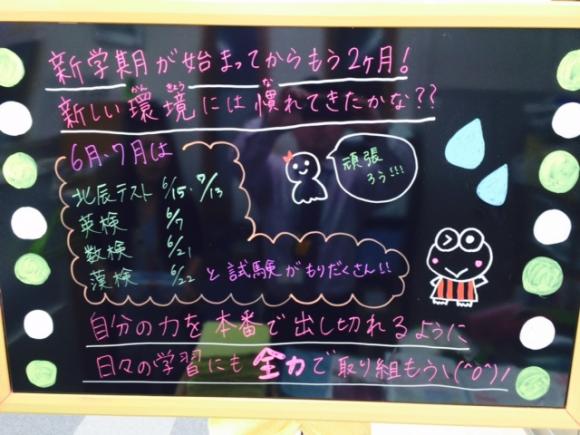 新学期が始まってからもう2ヶ月!
新しい環境には慣れてきたかな??
かん きょう な
6月・7月は
北辰テスト 6/15・7/13
英検 6/7
数検 6/21
漢検 6/22 と試験がもりだくさん!!
頑張
ろう!!!
自分の力を本番で出し切れるように
日々の学習にも全力で取り組もう\(^o^)/